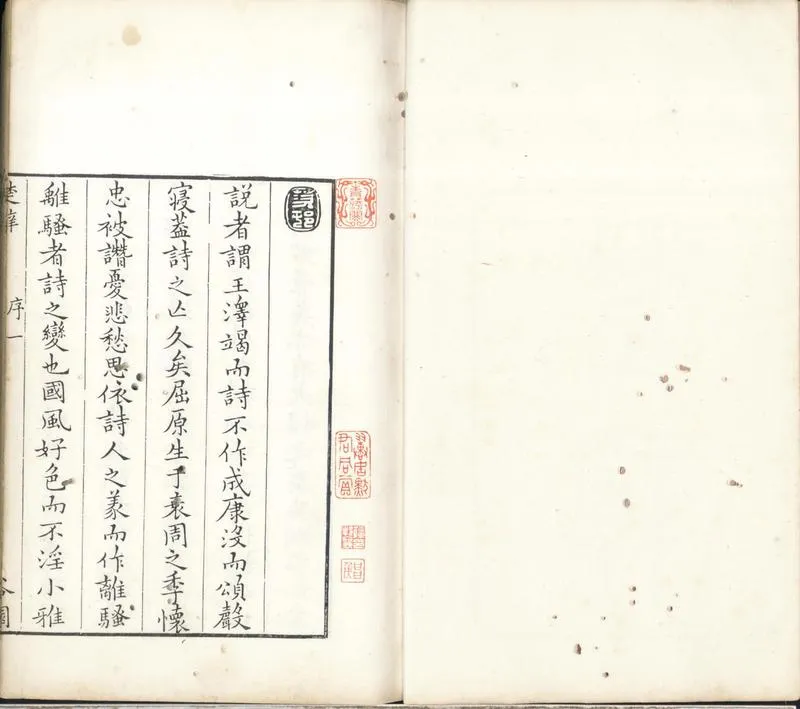 説者謂王澤竭而詩不作成康沒而頌聲
寢葢詩之亾久矣屈原生于衰周之季懷
忠被讒憂悲愁思依詩人之義而作離騷
離騷者詩之變也國風好色而不淫小雅
楚辭 序一